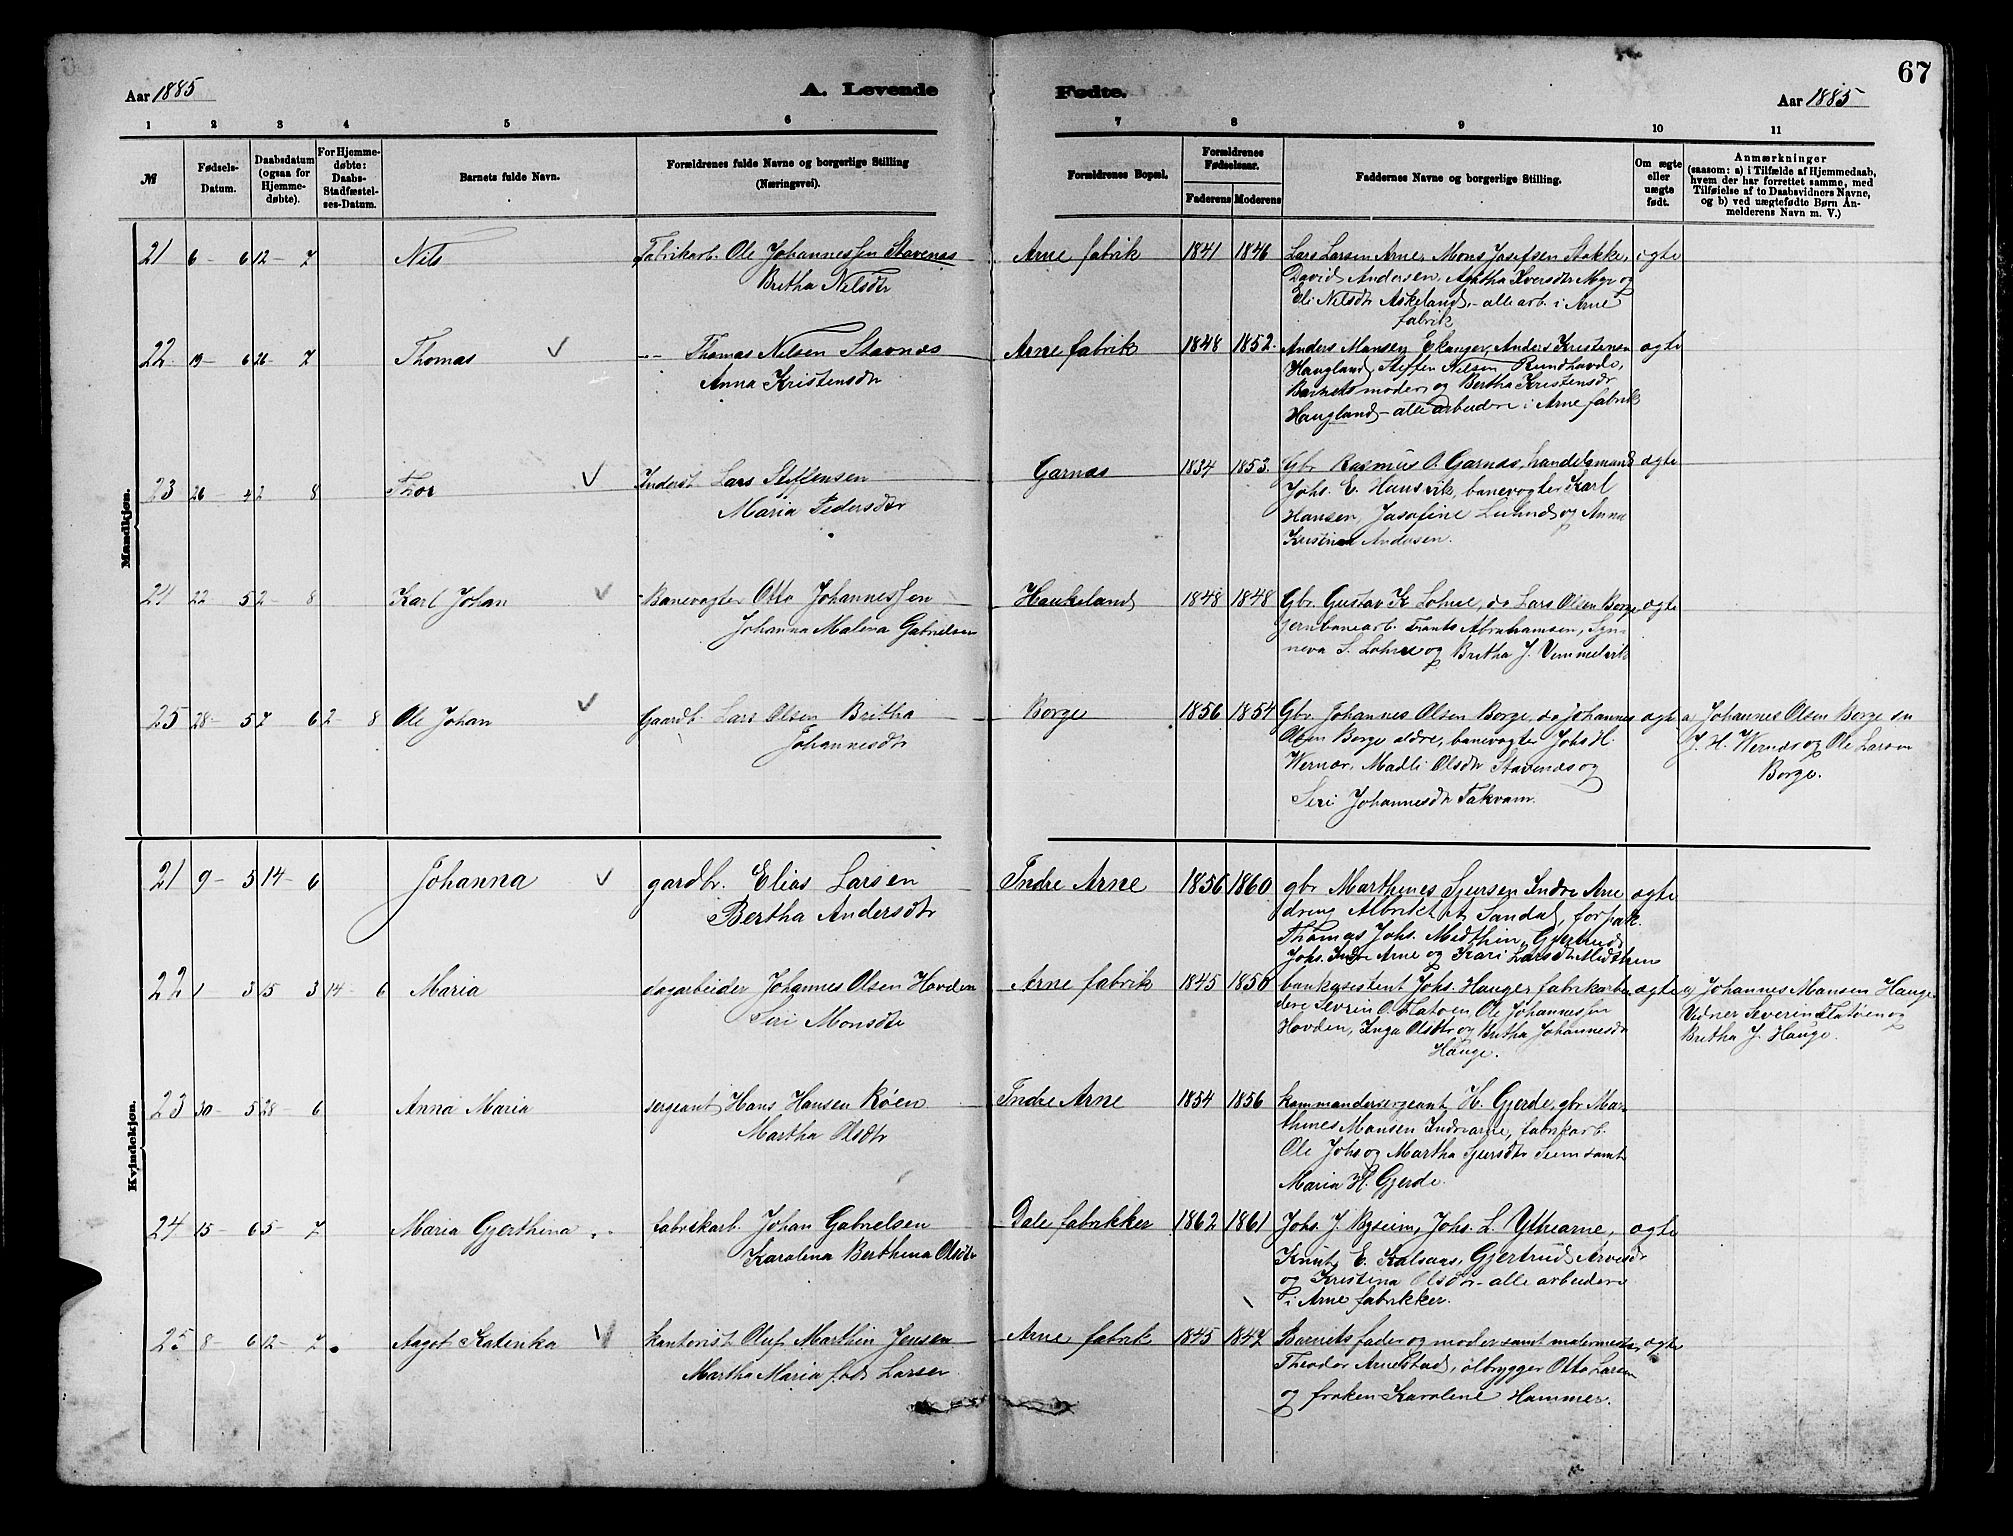 67
Aar 1885 A. Levende Fødte. Aar 1885
1 2 3 4 5 6 7 8 9 10 11
№ Fødsels-Datum. Daabsdatum (ogsaa for Hjemme-døbte). For Hjemme-døbte: Daabs-Stadfæstel-ses-Datum. Barnets fulde Navn. Forældrenes fulde Navne og borgerlige Stilling (Næringsvei). Forældrenes Bopæl. Forældrenes Fødselsaar. Faderens Moderens Faddernes Navne og borgerlige Stilling. Om ægte eller uægte født. Anmærkninger (saasom: a) i Tilfælde af Hjemmedaab, hvem der har forrettet samme, med Tilføielse af to Daabsvidners Navne, og b) ved uægtefødte Børn An-melderens Navn m. V.)
Mandkjøn.
21 6 - 6 12 - 7 Nils Fabrikarb. Ole Johannessen Stavenæs Arne fabrik 1841 1846 Lars Larsen Arne, Mons Josefsen Stokke, ægte
Britha Nilsdtr David Andersen, Agatha Iversdtr Mye og
Eli Nilsdtr Askeland - alle arb. i Arne
fabrik
22. 19 - 6 26 - 7 Thomas -"- Thomas Nilsen Stavnæs Arne fabrik 1848 1852. Anders Monsen Ekanger, Anders Kristensen ægte
Anna Kristensdtr Haugland, Steffen Nilsen Rundhovde,
Barnets moder og Bertha Kristensdtr
Haugland - alle arbeidere i Arne fabrik
23 26 - 4 2 - 8 Thor Inderst Lars Steffensen Garnæs 1834 1853. Gbr Rasmus O. Garnæs, handelsmand ægte
Maria Pedersdtr Johs. E. Hansvik, banevogter Karl
Hansen, Josefine Lund og Anna
Kristine Andersen.
24 22 - 5 2 - 8 Karl Johan Banevogter Otto Johannessen Haukeland 1848 1848 Gbr. Gustav K Lohne, do Lars Olsen Borge ægte
Johanna Malena Gabrielsen jernbanearb. Frants Abrahamsen, Syn-
neva S. Lohne og Britha J.
25 28 - 5 7 6 2 - 8 Ole Johan Gaardb. Lars Olsen Britha Borge 1856 1854 Gbr. Johannes Olsen Borge, do Johannes ægte a) Johannes Olsen Borge
Johannesdtr Olsen Borge ældre, banevogter Johs H. J. H. Wernær og Ole Larsen
Wernær, Madli Olsdtr Stavenæs og Borge.
Siri Johannesdtr Takvam.
Kvindekjøn.
21 9 - 5 14 - 6 Johanna gardbr. Elias Larsen Indre Arne 1856 1860 gbr Marthenes Sjursen Indre Arne ægte
Bertha Andersdtr dreng Albrikt A Sandal, forpak.
Thomas Johs. Midthun, Gjertrud
Johs. Indre Arne og Kari Larsdtr Midthun
22 1 3 15 3 14 - 6 Maria dagarbeider Johannes Olsen Hovden Arne fabrik 1845 1850 bankasistent Johs. Hauge, fabrikarbei- ægte a) Johannes Monsen Hauge
Siri Monsdtr dere Sevrin O. Flatøen, Ole Johannessen Vidner Severin Flatøen og
Hovden, Inga Olsdtr og Britha Johannesdtr Britha J. Hauge.
Hauge.
23 30 - 5 28 - 6 Anna Maria sergeant Hans Hansen Røen Indre Arne 1854 1856 kommandersergeant H. Gjerde, gbr Mar-
Martha Olsdtr thines Monsen Indrearne, fabrikarb.
Ole Johs og Martha Sjursdtr Seim samt
Maria H. Gjerde.
24 15 - 6 5 - 7 Maria Gjerthina fabrikarb. Johan Gabrielsen Dale fabrikker 1862 1861 Johs. J Ryseim, Johs. L. Ythrearne, ægte
Karolina Berthina Olsdtr Knut E. Kalsaas, Gjertrud Arvesdtr
og Kristina Olsdtr - alle arbeidere
i Arne fabrikker.
25 8 - 6 12 - 7 Aagot Katinka kontorist Oluf Marthin Jensen Arne fabrik 1845 1847 Barnets fader og moder samt malermester ægte
Martha Maria født Larsen. Theodor Arnestad, ølbrygger Otto Larsen
og frøken Karoline Hammer.